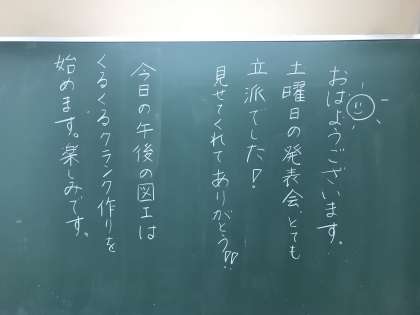 おはようございます。
土曜日の発表会、とても
立派でした!
見せてくれてありがとう!!
今日の午後の図工は
くるくるクランク作りを
始めます。楽しみです。